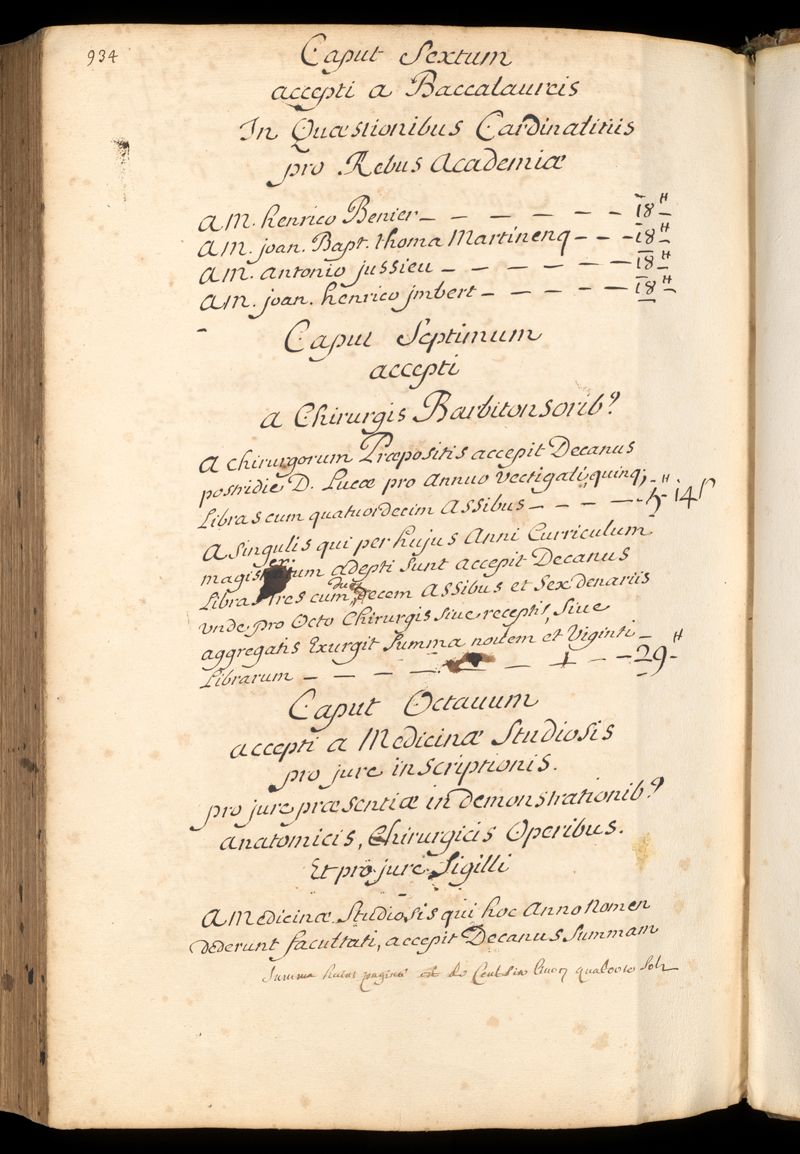 934
Caput Sextum
accepti a Baccalaureis
In Quæstionibus Cardinalitiis
pro Rebus Academiæ
a M. henrico Benier — — — — — — 18 ₶
a M. joan. Bapt. thoma Martinenq — — — 18 ₶
a M. antonio jussieu — — — — — — 18 ₶
a M. joan. henrico jmbert — — — — — 18 ₶
Caput Septimum
accepti
a Chirurgis Barbitonsorib9
a chirurgorum Præpositis accepit Decanus
postridie D. Lucæ pro annuo vectigali, quinq;
Libras cum quatuordecim assibus — — — — 5 ₶ 14 ſ
a singulis qui per hujus anni Curriculum
magisterium adepti sunt accepit Decanus
Libras tres cum duodecem assibus et sex denariis
vnde pro octo Chirurgis siue receptis, siue
aggregatis Exurgit summa nouem et viginti
Librarum — — — — — — — — 29 ₶
Caput Octauum
accepti a Medicinæ Studiosis
pro jure inscriptionis.
pro jure præsentiæ in demonstrationib9
anatomicis, Chirurgicis Operibus.
Et pro jure Sigilli
a Medicinæ Studiosis qui hoc anno nomen
dederunt facultati, accepit Decanus Summam
Summa huius paginæ est de Cent six